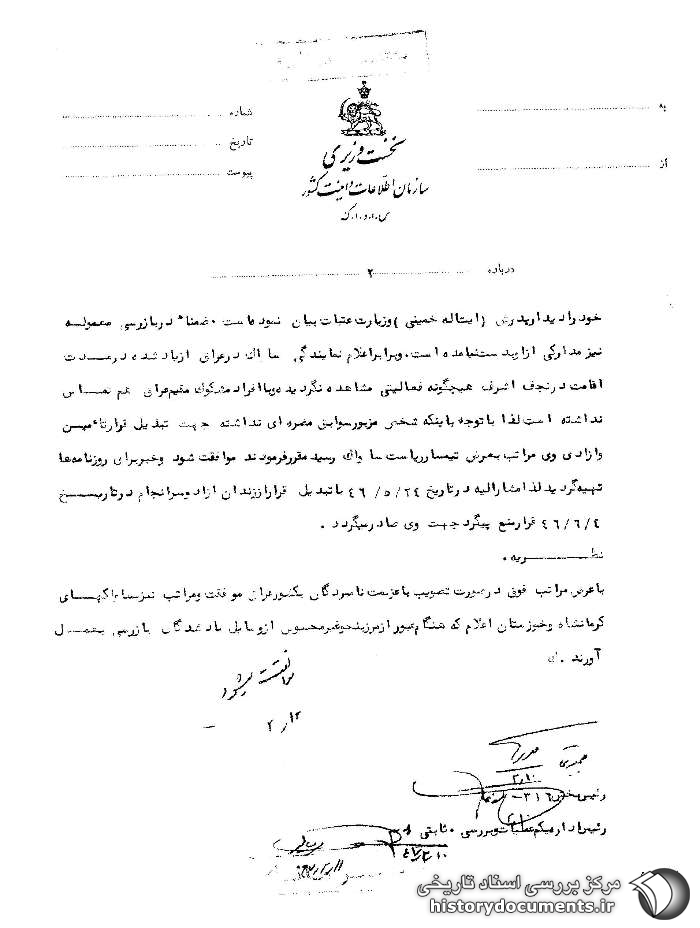 به
از
شماره
تاریخ
پیوست
نخست وزیری
سازمان اطلاعات و امنیت کشور
س.ا.و.ا.ک
درباره ۲
خود را دیدار پدرش (ایتاله خمینی) و زیارت عتبات بیان نموده است ۰ ضمناً در بازرسی معموله
نیز مدارکی از او بدست نیامده است. و برابر اعلام نمایندگی ساواک در عراق از یاد شده در مدت
اقامت در نجف اشرف هیچگونه فعالیتی مشاهده نگردیده و با افراد مشکوک مقیم عراق هم تماس
نداشته است لذا با توجه باینکه شخص مزبور سوابق مضره ای نداشته جهت تبدیل قرار تأمین
و ازادی وی مراتب بعرض تیمسار ریاست ساواک رسید مقرر فرمودند موافقت شود و خبر برای روزنامه‌ها
تهیه گردید لذا مشارالیه در تاریخ ۴۶/۵/۲۴ با تبدیل قرار از زندان ازاد و سرانجام در تاریخ
۴۶/۶/۴ قرار منع پیگرد جهت وی صادر میگردد .
نظریه ۰
با عرض مراتب فوق در صورت تصویب با عزیمت نامبردگان بکشور عراق موافقت و مراتب نیز بساواکهای
کرمانشاه و خوزستان اعلام که هنگام عبور از مرز بنحو غیر محسوس از وسایل یاد شدگان بازرسی بعمل
آورند .
موافقت میشود
۲/۱۲
رئیس بخش ۳۱۶
رئیس اداره یکم عملیات و بررسی ۰ ثابتی
۴۷/۲/۱۰
مرکز بررسی اسناد تاریخی
historydocuments.ir